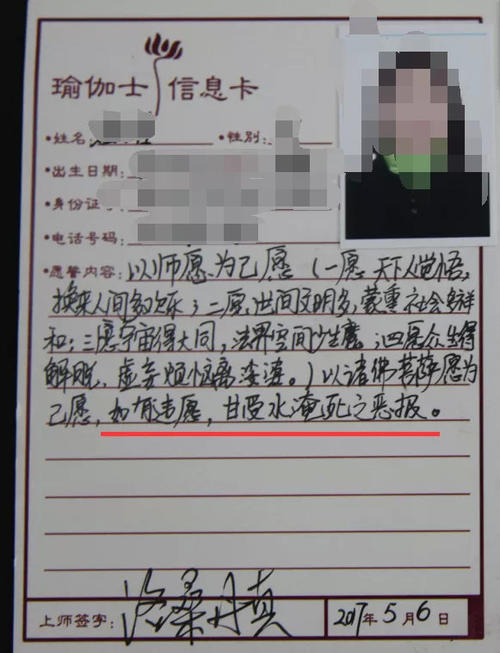 瑜伽士 信息卡
•姓名: •性别:
•出生日期:
•身份证号
•电话号码:
•愿誓内容: 以师愿为己愿（一愿天下人觉悟,
换来人间多欢乐；二愿世间文明多,蒙熏社会多祥
和；三愿宇宙得大同,法界空间少生魔；四愿众生得
解脱,虚妄烦恼离娑婆。）以诸佛菩萨愿为
己愿,如有违愿,甘受水淹死之恶报。
上师签字: 洛桑丹真 2017年5月6日